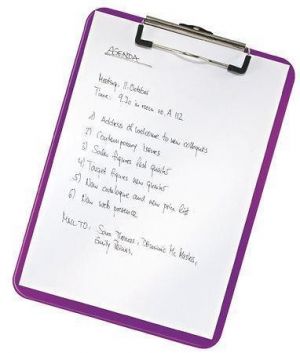 AGENDA
Meeting: 11. October
Time: 9.30 in room no. A 112
1) Address of welcome to new colleagues
2) Contemporary issues
3) Sales figures last quarter
4) Target figures new quarter
5) New catalogue and new price list
6) New web presence
MAIL TO: Sean Thomas, Dominic Mc
Emily